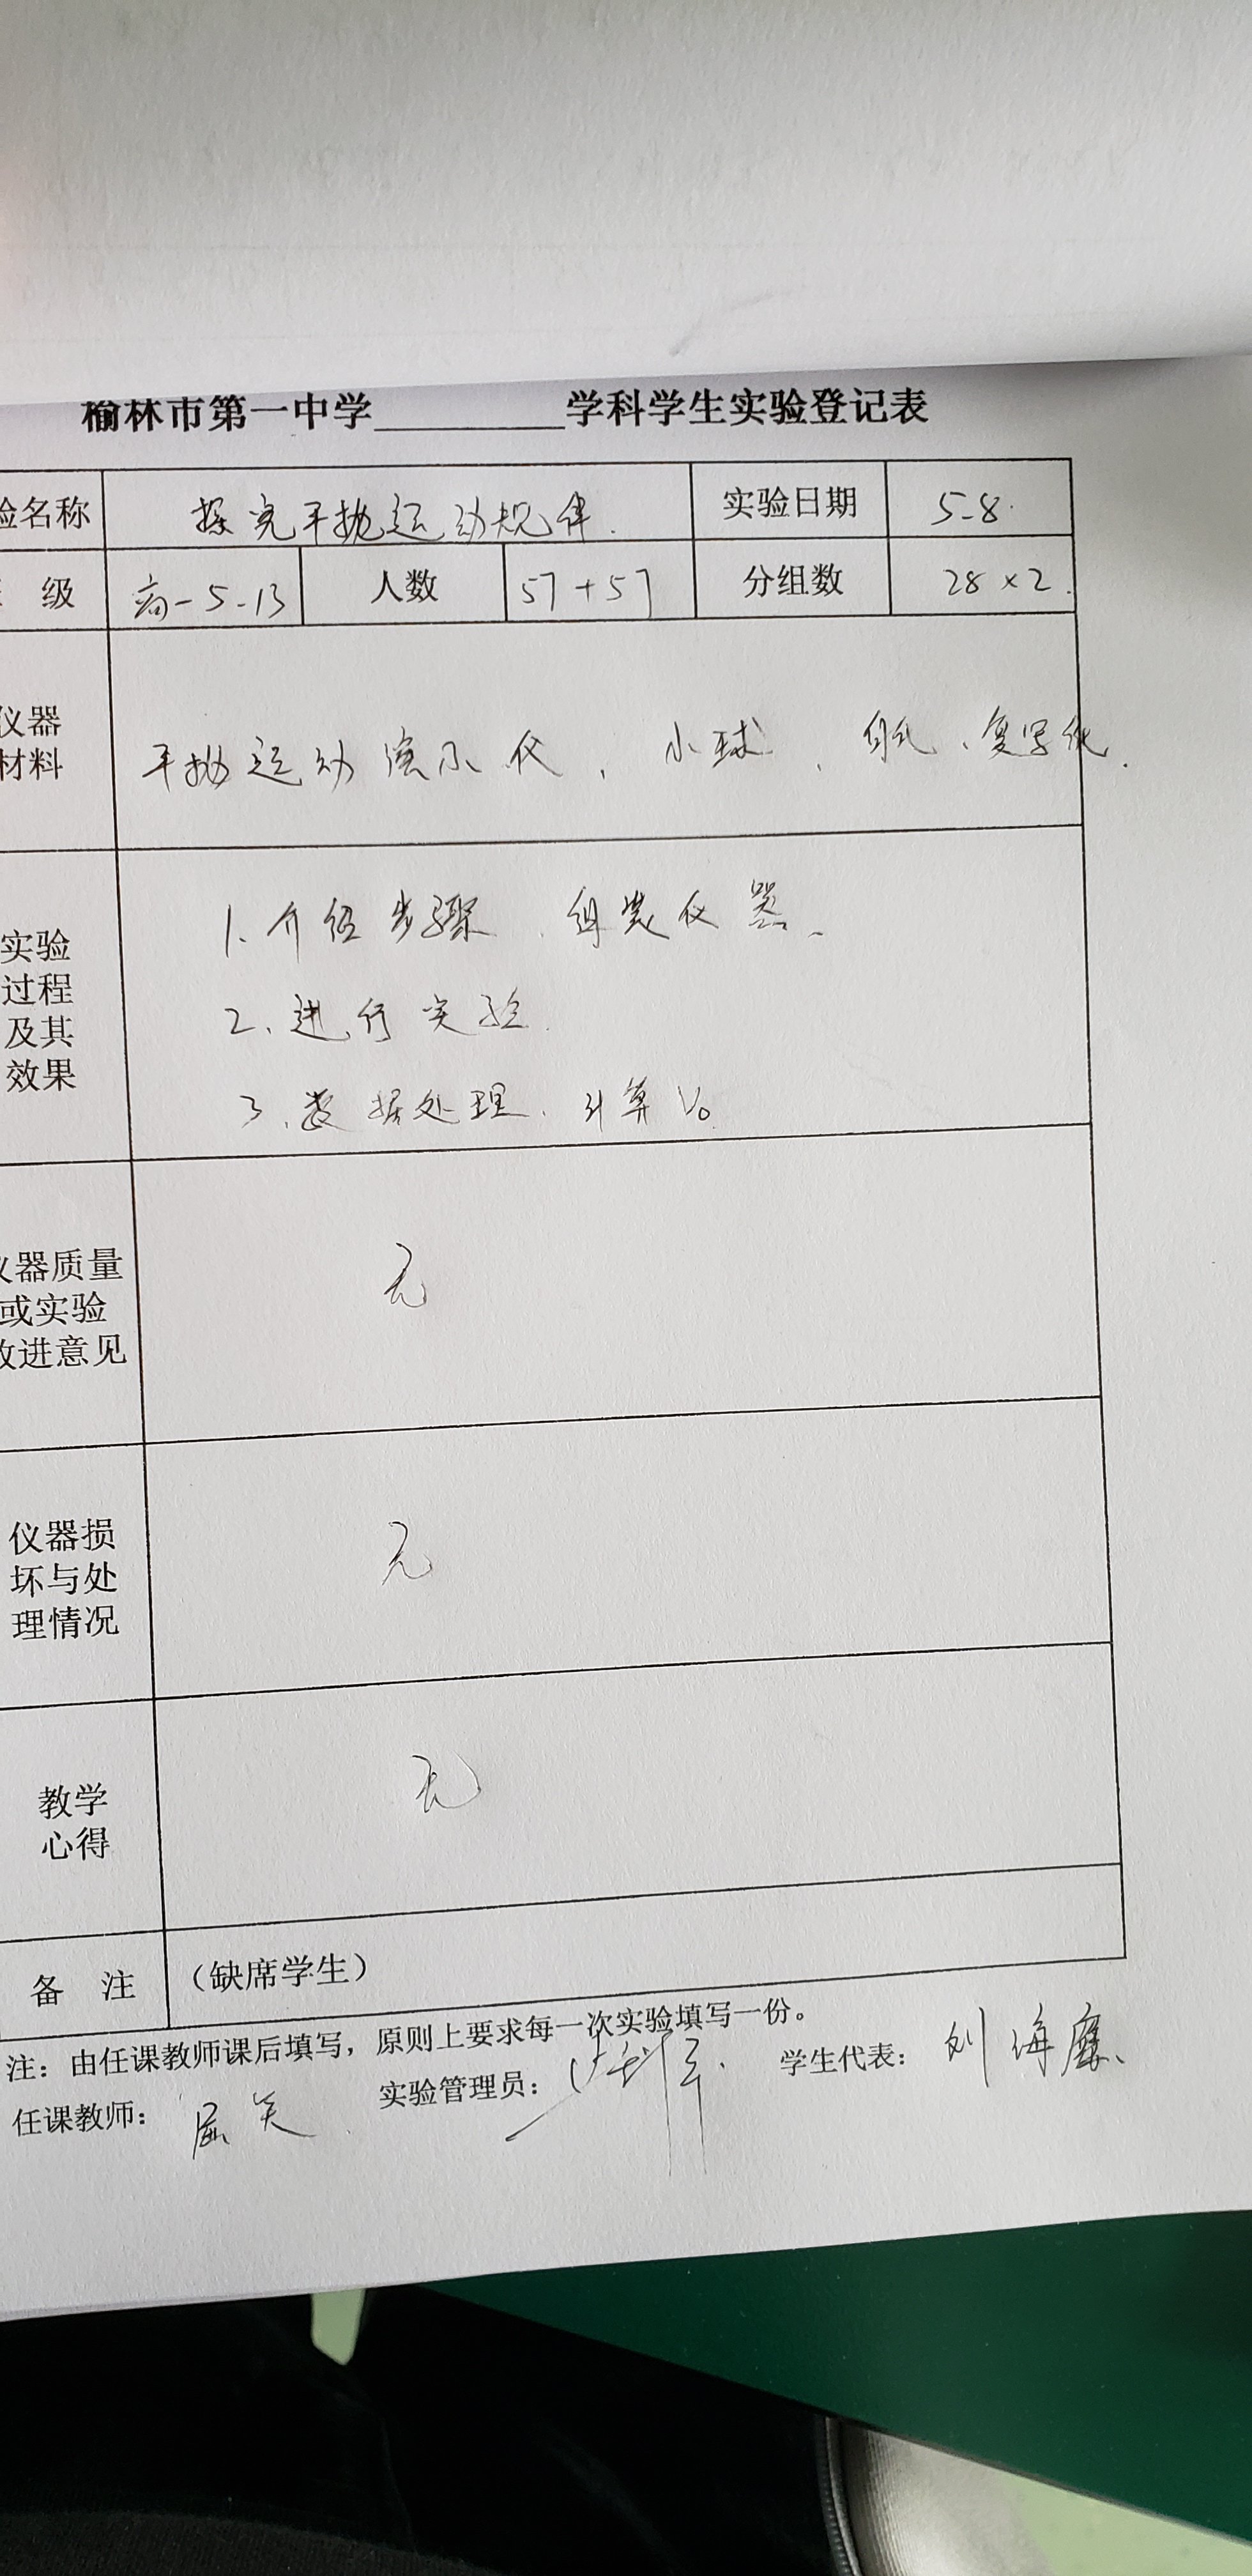 榆林市第一中学__________学科学生实验登记表
验名称 探究平抛运动规律. 实验日期 5-8.
级 高一5-13 人数 57+57 分组数 28×2.
仪器
材料
平抛运动演示仪, 小球, 白纸、复写纸.
实验
过程
及其
效果
1、介绍步骤、组装仪器、
2、进行实验.
3、数据处理、计算V₀
仪器质量
或实验
改进意见
无
仪器损
坏与处
理情况
无
教学
心得
无
备 注 (缺席学生)
注:由任课教师课后填写,原则上要求每一次实验填写一份。
任课教师: 屈笑 实验管理员: 学生代表: 刘海